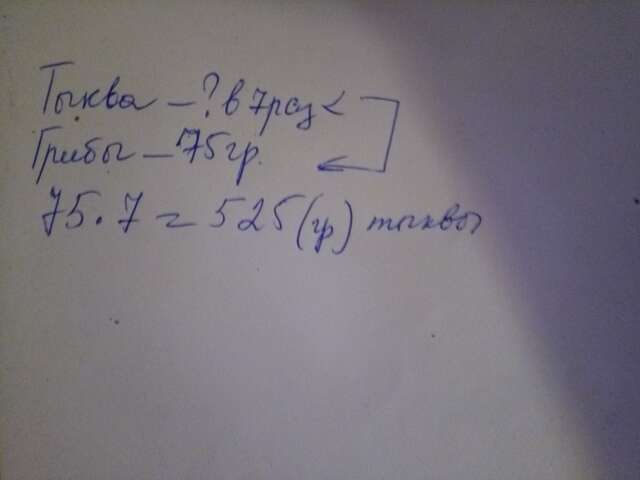 Тыква – ? в 7раз <
Грибы – 75гр.
75 · 7 = 525 (гр) тыквы